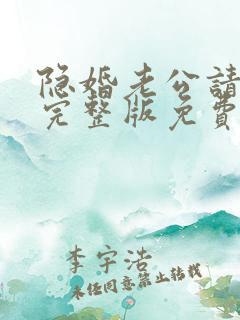 隐婚老公請
完整版免費
李宇浩
未经同意禁止转载